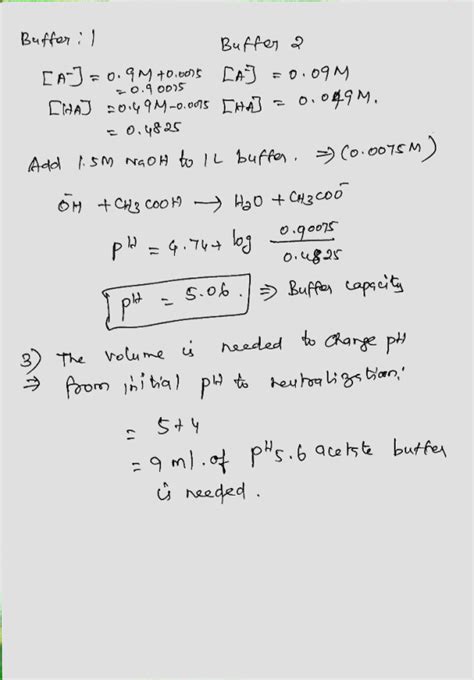 Buffer : 1
Buffer 2
[A-] = 0.9M +0.0075
= 0.90075
[A-] = 0.09M
[HA] = 0.49M-0.0075
[HA] = 0.049M.
= 0.4825
Add 1.5M NaOH to 1L buffer. ⇒ (0.0075M)
ŌH + CH3COOH → H2O + CH3COŌ
pH = 4.74 + log 0.90075
0.4825
pH = 5.06. ⇒ Buffer capacity
3) The volume is needed to change pH
⇒ from initial pH to neutralization,
= 5+4
= 9 ml. of pH 5.6 acetate buffer
is needed.